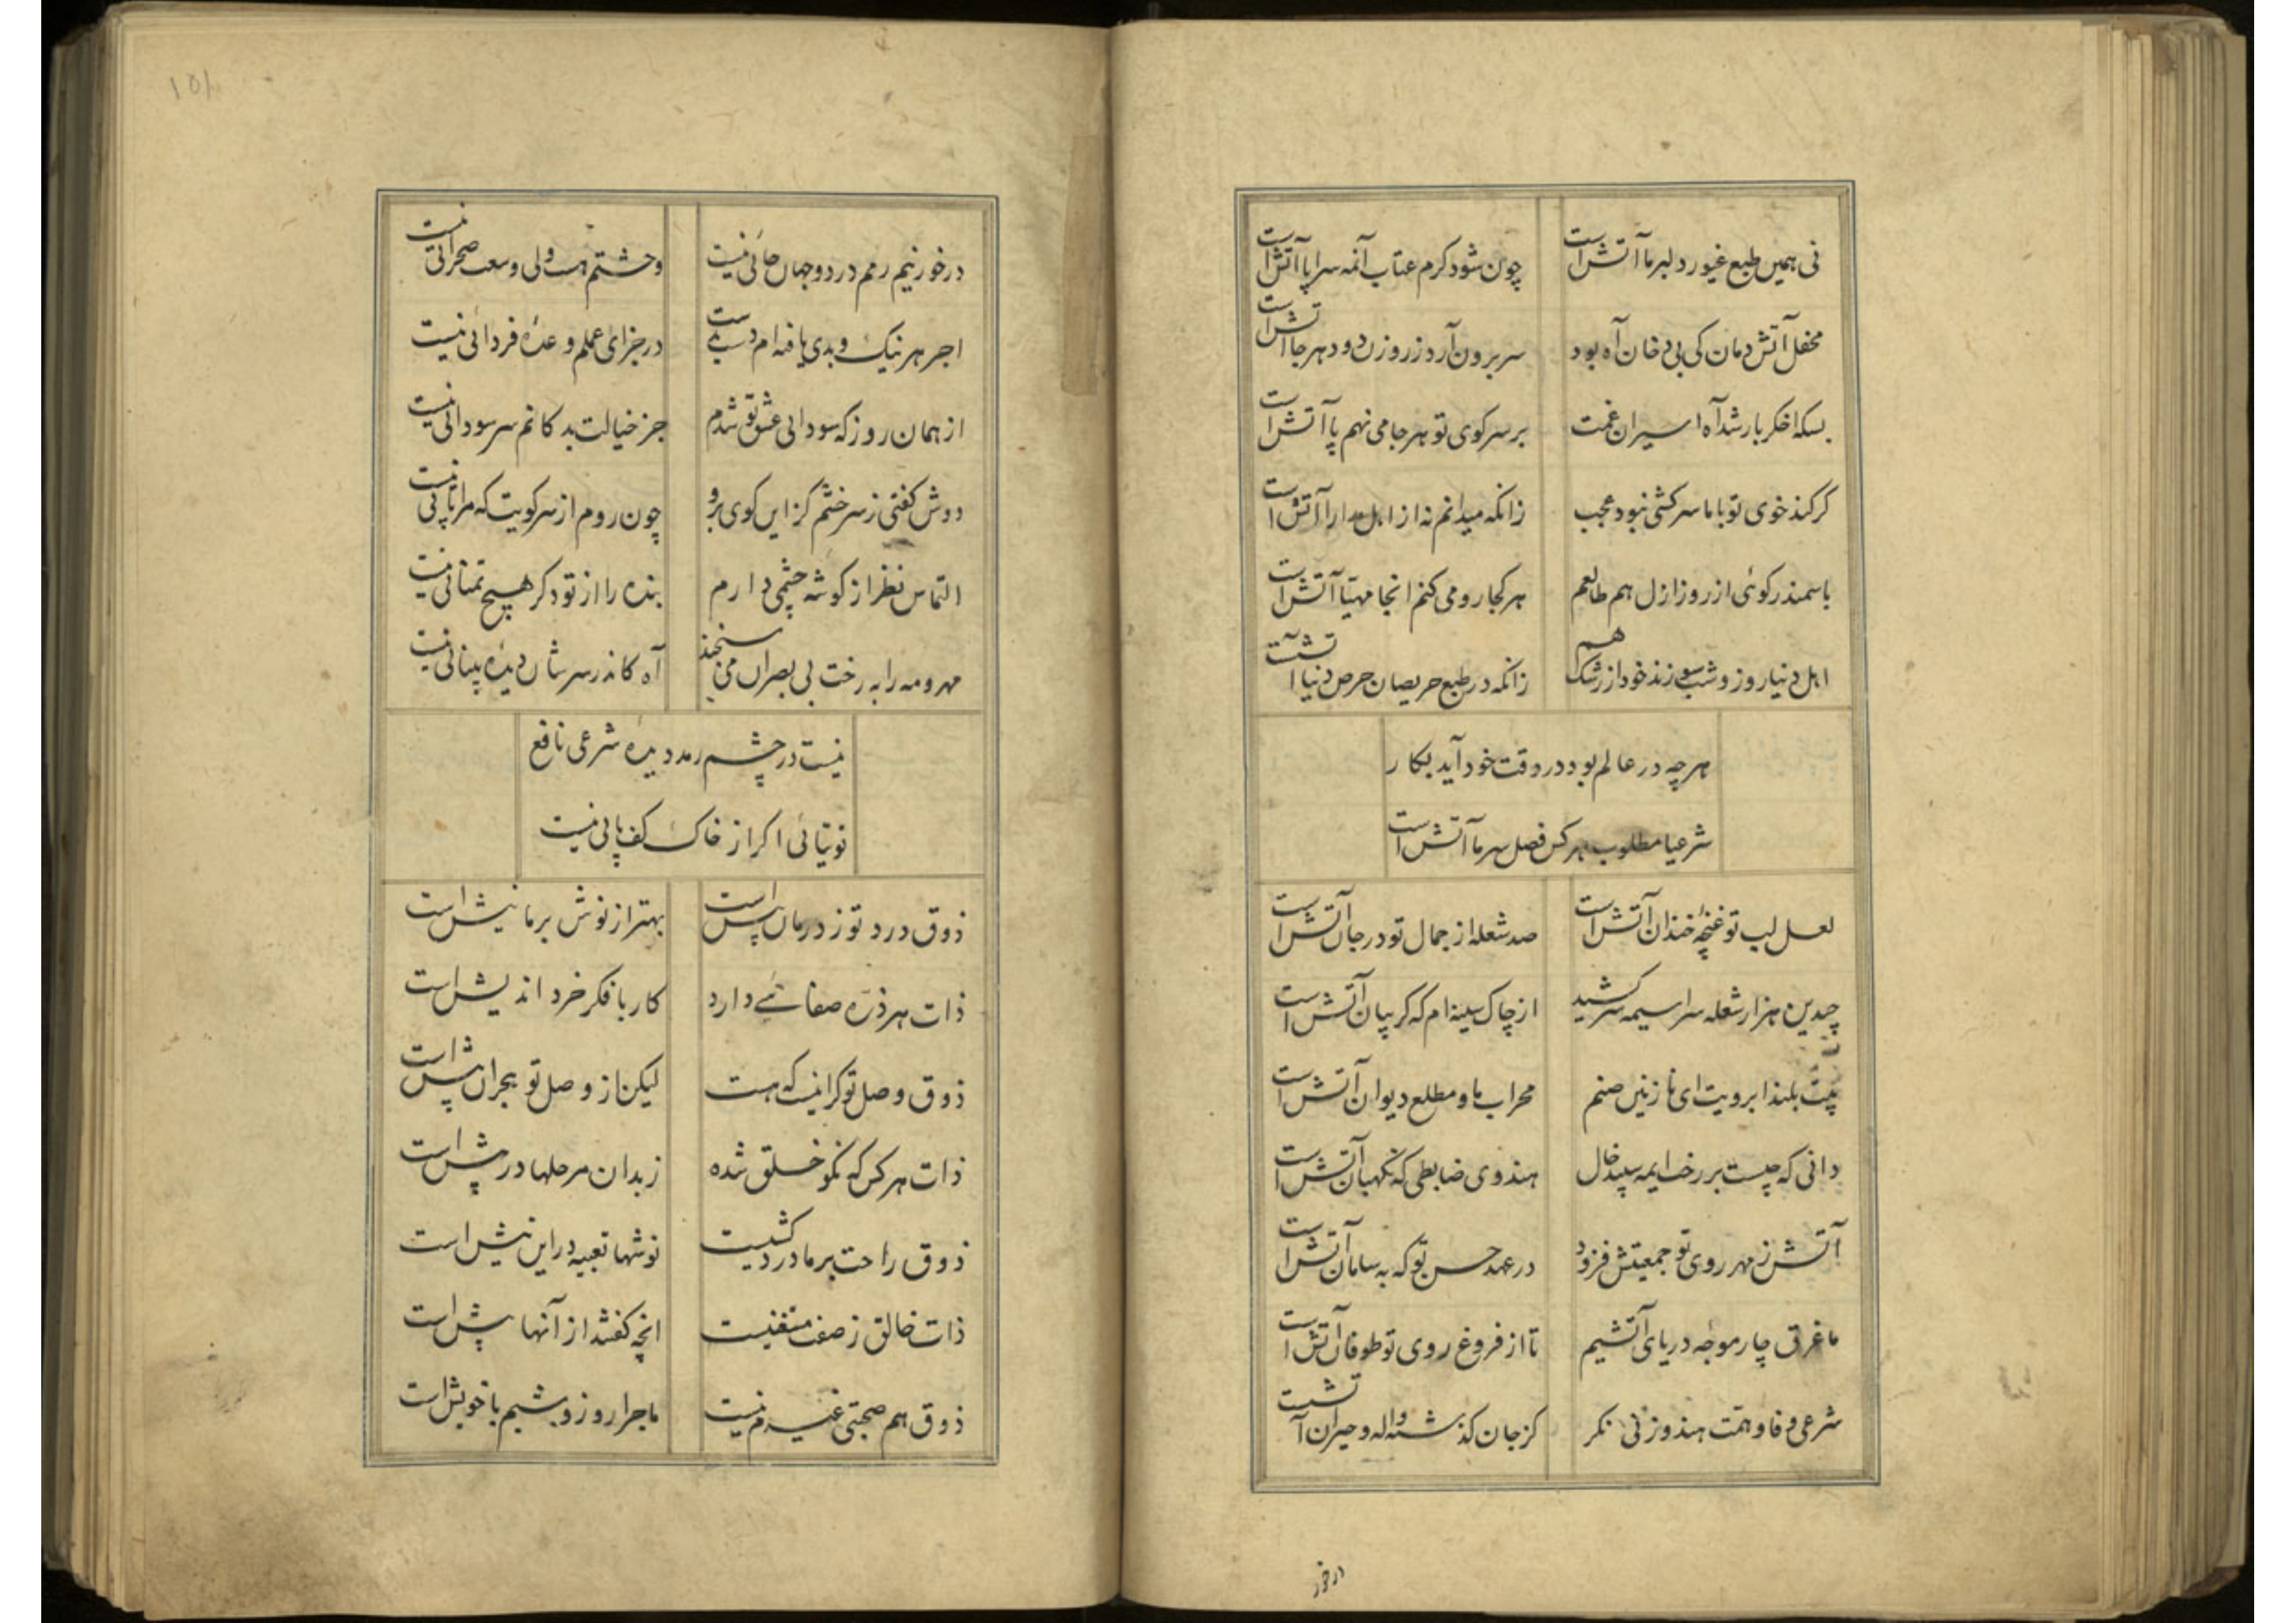 نی همین طبع غیور دلبر ما آتش است
چون شود کرم عتاب آنمه سراپا آتش است
محفل آتش دمان کی بی دخان آه بود
سر برون آرد ز روزن دود هر جا آتش است
بسکه اخکر بار شد آه اسیران غمت
بر سر کوی تو هر جا می نهم پا آتش است
کر کند خوی تو با ما سرکشی نبود عجب
زانکه میدانم نه از اهل مدارا آتش است
با سمندر کوئی از روز ازل هم طالعم
هر کجا رو می کنم انجا مهیا آتش است
اهل دنیا روز و شب سوزند خود از رشک هم
زانکه در طبع حریصان حرص دنیا آتش است
هر چه در عالم بود در وقت خود آید بکار
شرعیا مطلوب هر کس فصل سرما آتش است
لعل لب تو غنچهٔ خندان آتش است
صد شعله از جمال تو در جان آتش است
چندین هزار شعله سراسیمه سر کشید
از چاک سینه ام که کریبان آتش است
بیت بلند ابرویت ای نازنین صنم
محراب ما و مطلع دیوان آتش است
دانی که چیست بر رخت ایمه سپند خال
هندوی ضابطی که نکهبان آتش است
آتش ز مهر روی تو جمعیتش فزود
در عهد حسن تو که به سامان آتش است
ما غرق چار موجهٔ دریای آتشیم
تا از فروغ روی تو طوفان آتش است
شرعی وفا و همت هندو زنی نکر
کز جان کذشته واله و حیران آتش است
در خور
١٥١
در خور نیم رمم در دو جهان جائی نیست
وحشتم هست ولی وسعت صحرائی نیست
اجر هر نیک و بدی یافته ام دست بدست
در جزای عملم وعدهٔ فردائی نیست
از همان روز که سودائی عشق تو شدم
جز خیالت بدکانم سر سودائی نیست
دوش کفتی ز سر خشم کزاین کوی برو
چون روم از سر کویت که مرا پائی نیست
التماس نظر از کوشه چشمی دارم
بنده را از تو دکر هیچ تمنائی نیست
مهر و مه را به رخت بی بصران می سنجند
آه کاندر سر شان دیدهٔ بینائی نیست
نیست در چشم رمد دیدهٔ شرعی نافع
توتیائی اکر از خاک کف پائی نیست
ذوق درد تو ز درمان بیش است
بهتر از نوش بر ما نیش است
ذات هر ذره صفاتے دارد
کار با فکر خرد اندیش است
ذوق وصل تو کرانیست که هست
لیکن از وصل تو هجران بیش است
ذات هر کس که نکو خلق شده
ز بدان مرحلها در پیش است
ذوق راحت بر ما درد کشیست
نوشها تعبیه در این نیش است
ذات خالق ز صفت مستغنیست
انچه کفتند از آنها بیش است
ذوق هم صحبتی غیرم نیست
ماجرا روز و شبم با خویش است